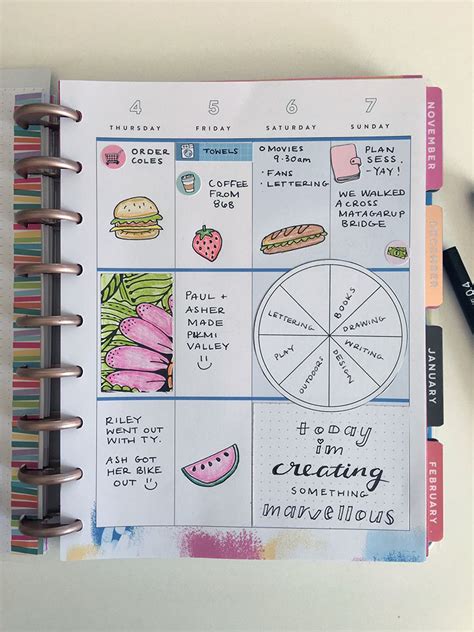 4
THURSDAY
5
FRIDAY
6
SATURDAY
7
SUNDAY
ORDER
COLES
TOWELS
COFFEE
FROM
868
MOVIES
9:30am
· FANS
· LETTERING
PLAN
SESS.
- YAY!
WE WALKED
ACROSS
MATAGARUP
BRIDGE
PAUL +
ASHER
MADE
PIKMI
VALLEY
BOOKS
DRAWING
WRITING
DESIGN
OUTDOORS
PLAY
LETTERING
RILEY
WENT OUT
WITH TY.
ASH GOT
HER BIKE
OUT
today
im
creating
SOMETHING
marvellous
NOVEMBER
DECEMBER
JANUARY
FEBRUARY
04